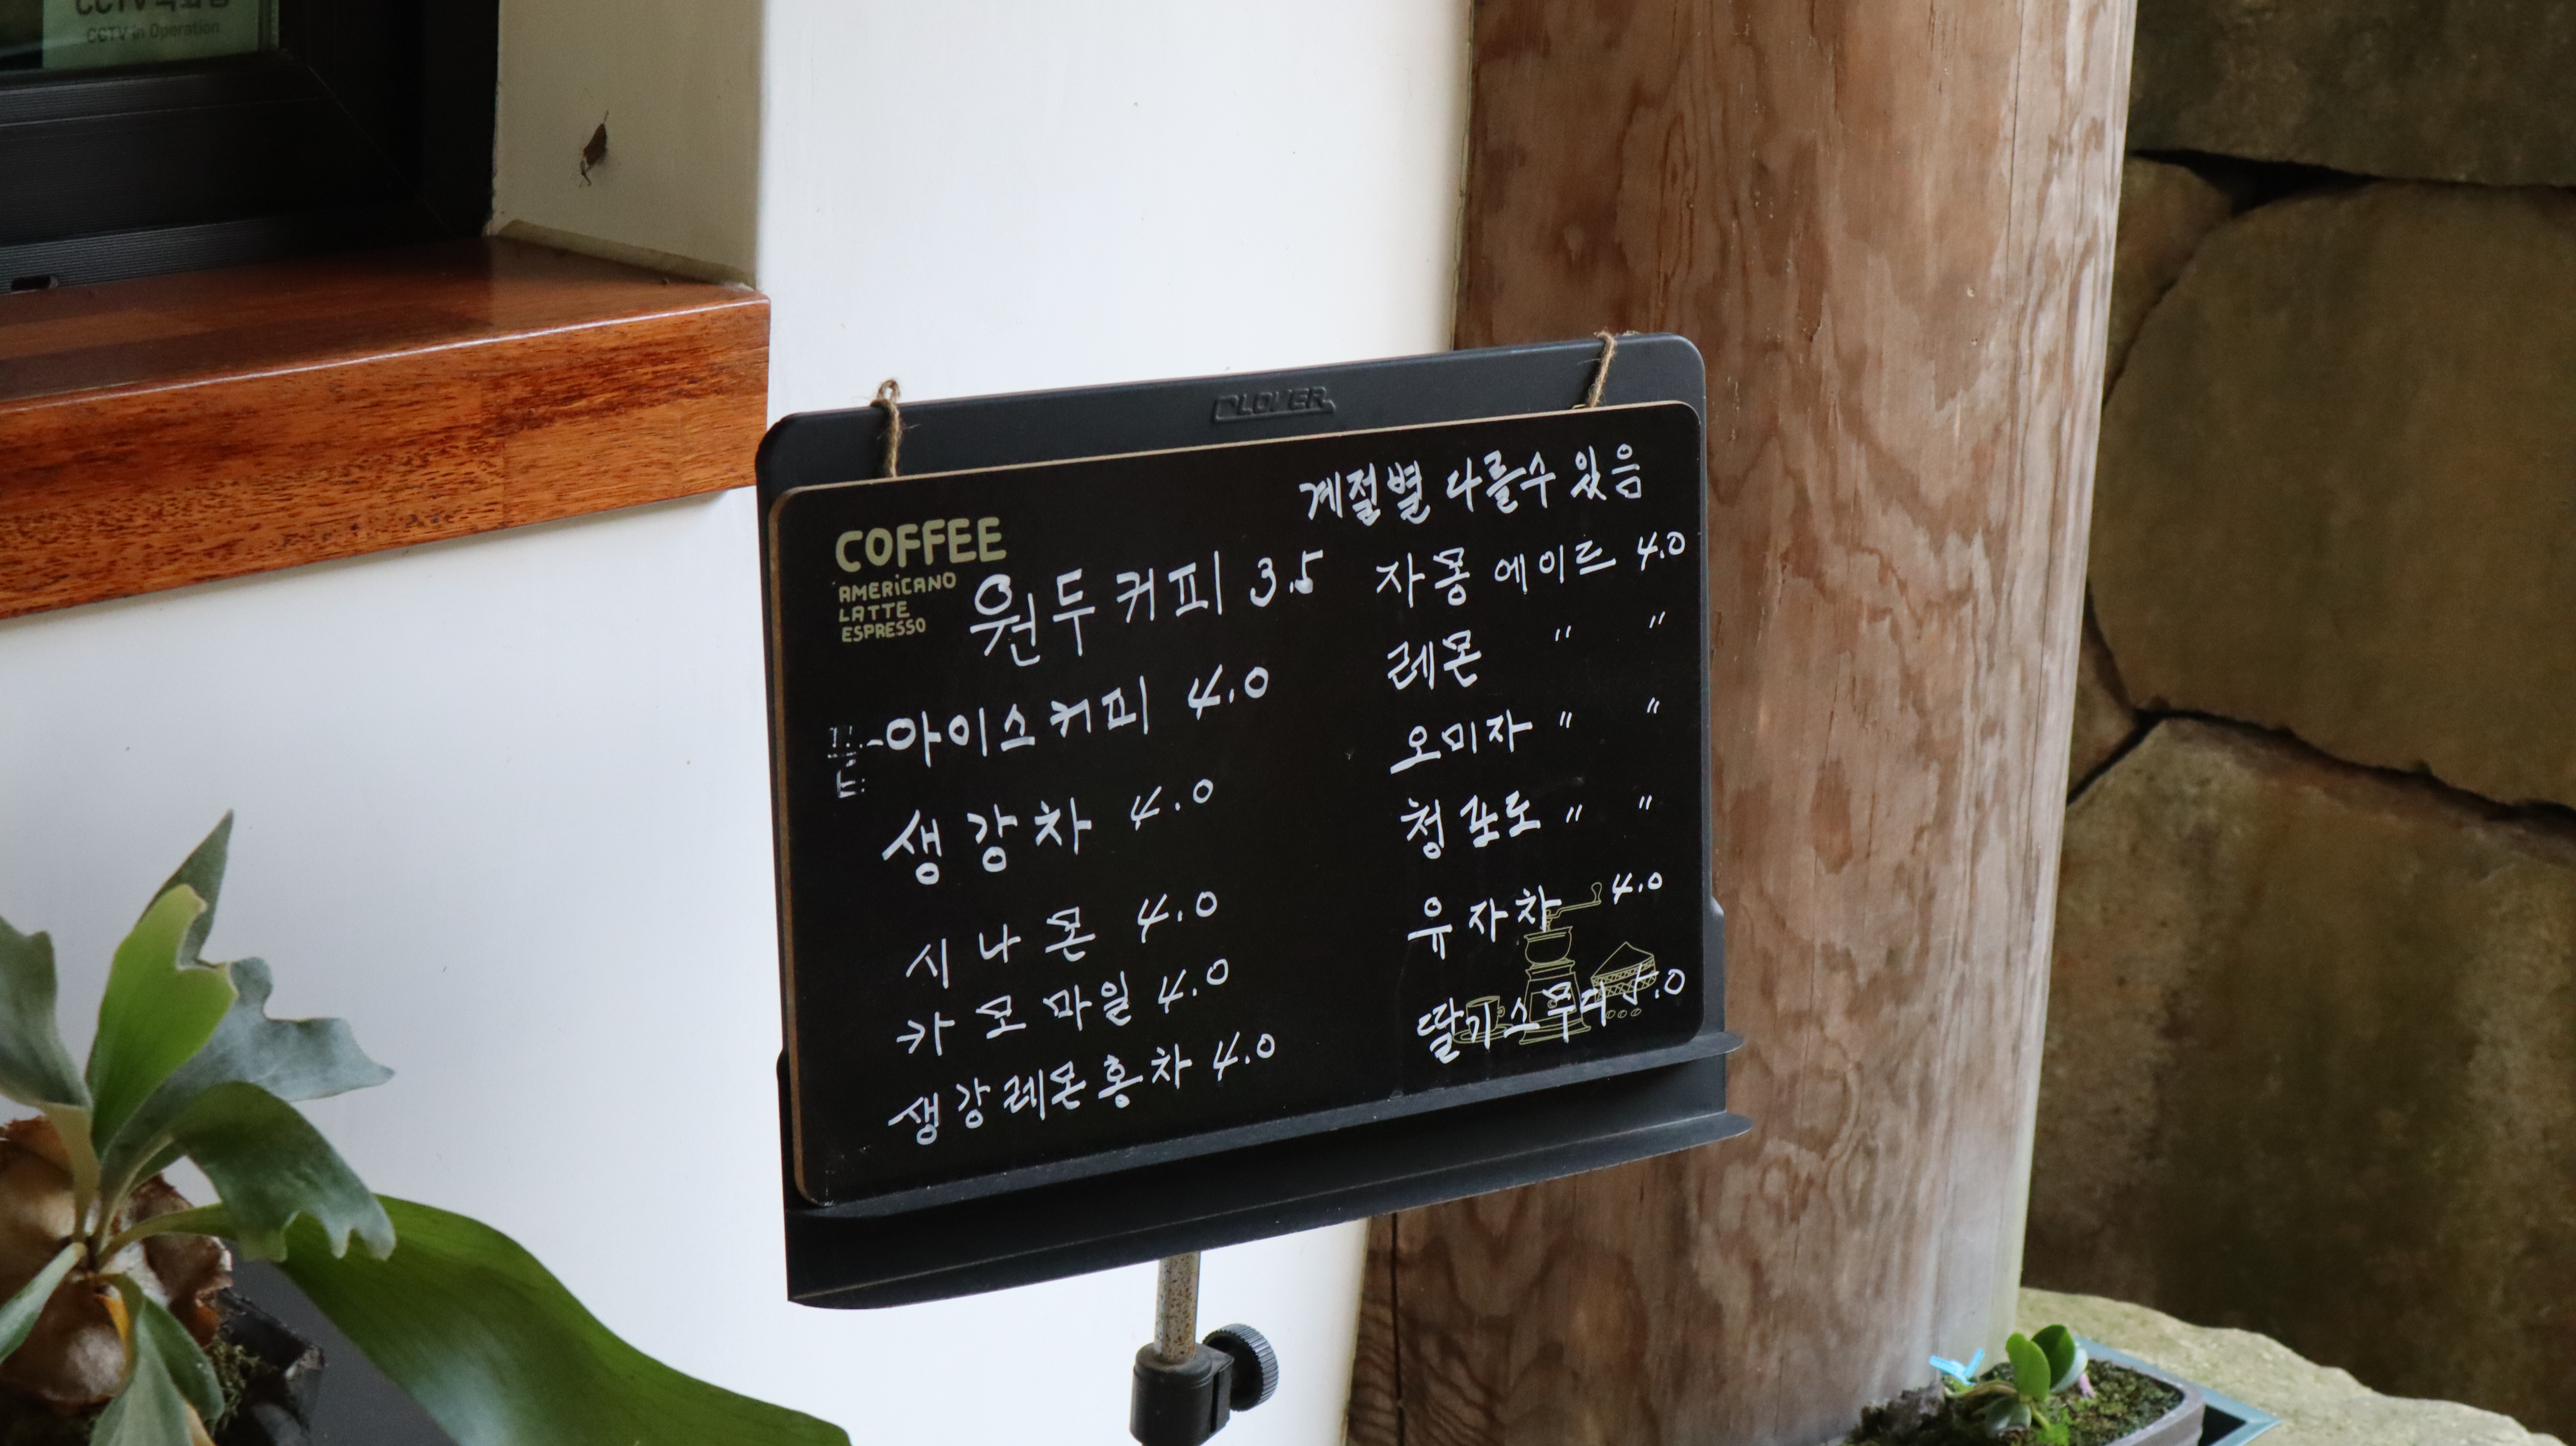 CCTV in Operation
CLOVER
COFFEE
AMERICANO
LATTE
ESPRESSO
원두커피 3.5
아이스커피 4.0
생강차 4.0
시나몬 4.0
카모마일 4.0
생강레몬홍차 4.0
계절별 다를수 있음
자몽 에이드 4.0
레몬 〃 〃
오미자 〃 〃
청포도 〃 〃
유자차 4.0
딸기스무디 5.0